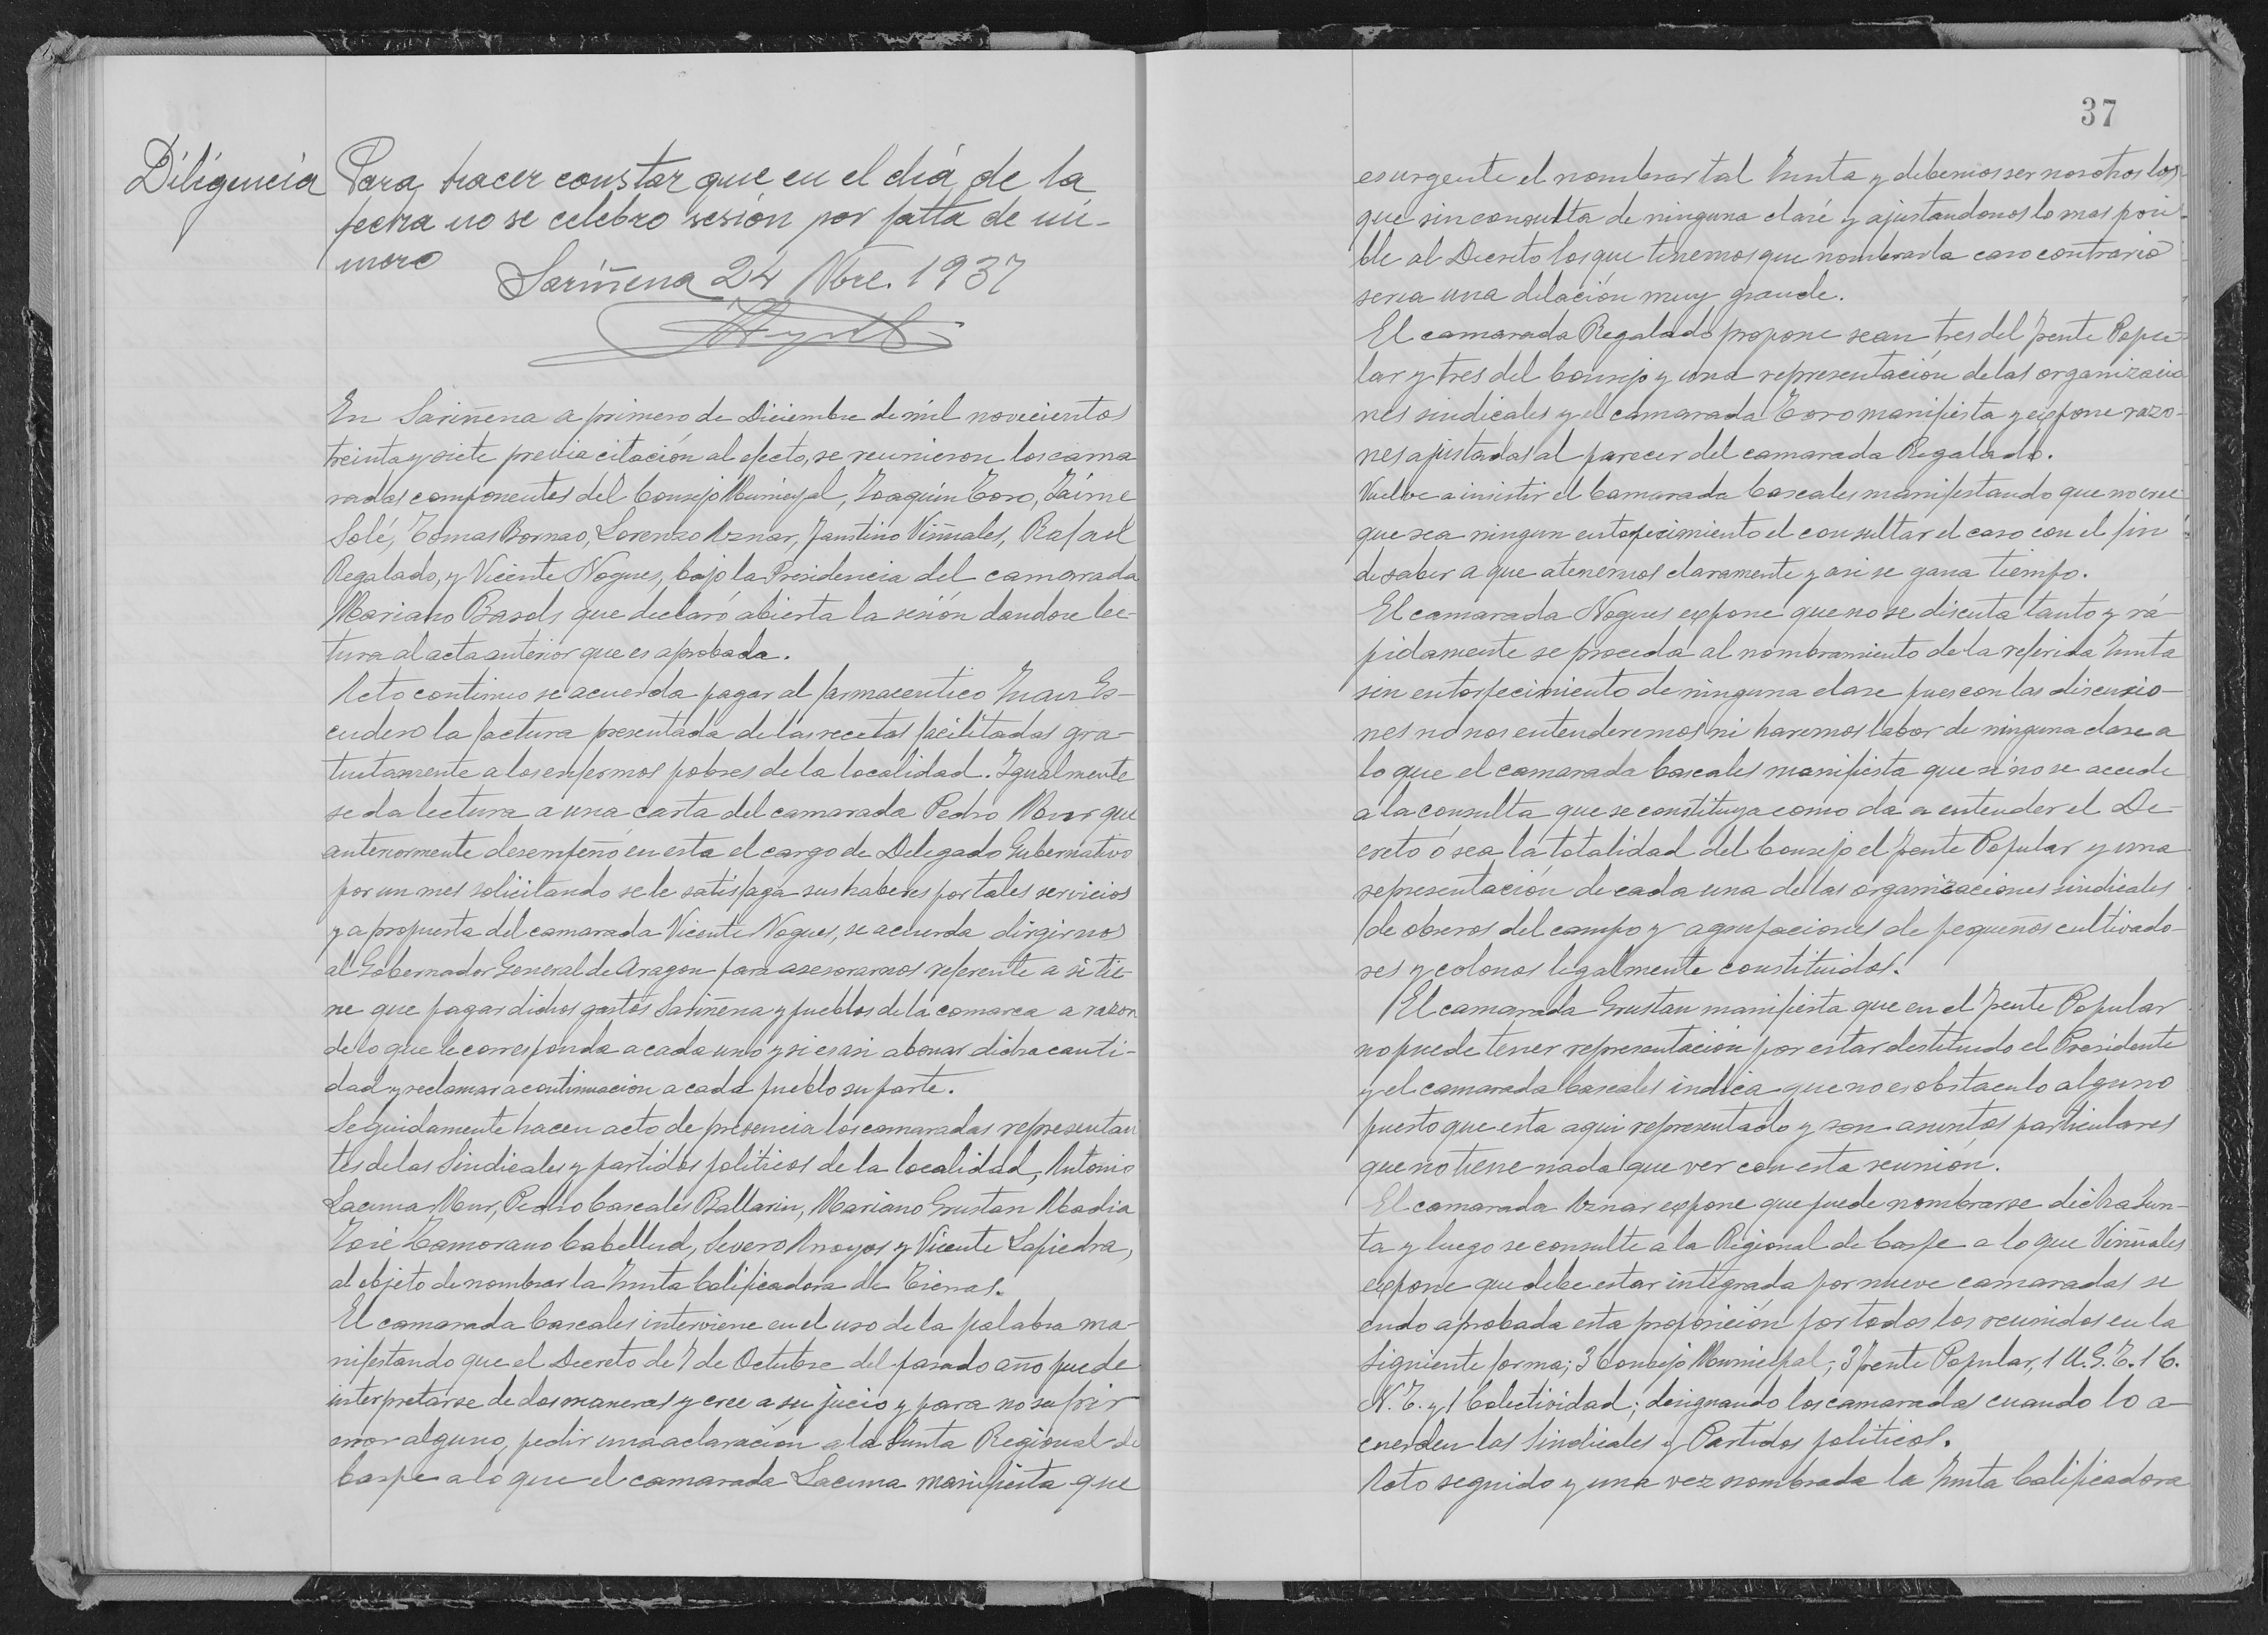 Diligencia
Para hacer constar que en el día de la
fecha no se celebro sesión por falta de nú-
mero
Sariñena 24 Nbre. 1937
En Sariñena a primero de Diciembre de mil novecientos
treinta y siete previa citación al efecto, se reunieron los cama
radas componentes del Consejo Municipal, Joaquin Toro, Jaime
Solé, Tomas Bornao, Lorenzo Aznar, Faustino Viñuales, Rafael
Regalado, y Vicente Nogues, bajo la Presidencia del camarada
Mariano Basols que declaró abierta la sesión dandose lec-
tura al acta anterior que es aprobada.
Acto continuo se acuerda pagar al farmaceutico Juan Es-
cudero la factura presentada de las recetas facilitadas gra-
tuitamente a los enfermos pobres de la localidad. Igualmente
se da lectura a una carta del camarada Pedro Mur que
anteriormente desempeñó en esta el cargo de Delegado Gubernativo
por un mes solicitando se le satisfaga sus haberes por tales servicios
y a propuesta del camarada Vicente Nogues, se acuerda dirgirnos
al Gobernador General de Aragon para asesorarnos referente a si tie-
ne que pagar dichos gastos Sariñena y pueblos de la comarca a razon
de lo que le corresponda a cada uno y si es asi abonar dicha canti-
dad y reclamar a continuacion a cada pueblo su parte.
Seguidamente hacen acto de presencia los camaradas representan
tes de las Sindicales y partidos politicos de la localidad, Antonio
Lacuma Mur, Pedro Cascales Ballarin, Mariano Grustan Abadia
José Zamorano Cabellud, Severo Anoyos y Vicente Lapiedra,
al objeto de nombrar la Junta Calificadora de Tierras.
El camarada Cascales interviene en el uso de la palabra ma-
nifestando que el Decreto de 7 de Octubre del pasado año puede
interpretarse de dos maneras y cree a su jucio y para no sufrir
error alguno, pedir una aclaración a la Junta Regional de
Caspe a lo que el camarada Lacuma manifiesta que
37
es urgente el nombrar tal Junta y debemos ser nosotros los
que sin consulta de ninguna clase y ajustandonos lo mas posi
ble al Decreto los que tenemos que nombrarla caso contrario
seria una dilación muy grande.
El camarada Regalado propone sean tres del frente Popu-
lar y tres del Consejo y una representación de las organizacio
nes sindicales y el camarada Toro manifiesta y expone razo-
nes ajustadas al parecer del camarada Regalado.
Vuelve a insistir el Camarada Cascales manifestando que no cree
que sea ningun entorpecimiento el consultar el caso con el fin
de saber a que atenernos claramente y asi se gana tiempo.
El camarada Nogues expone que no se discuta tanto y rá-
pidamente se proceda al nombramiento de la referida Junta
sin entorpecimiento de ninguna clase pues con las discusio-
nes no nos entenderemos ni haremos labor de ninguna clase a
lo que el camarada Cascales manifiesta que si no se accede
a la consulta que se constituya como da a entender el De-
creto ó sea la totalidad del Consejo el frente Popular y una
representación de cada una de las organizaciones sindicales
de obreros del campo y agrupaciones de pequeños cultivado-
res y colonos legalmente constituidos.
El camarada Grustan manifiesta que en el frente Popular
no puede tener representacion por estar destituido el Presidente
y el camarada Cascales indica que no es obstaculo alguno
puesto que esta aqui representado y son asuntos particulares
que no tiene nada que ver con esta reunión.
El camarada Aznar expone que puede nombrarse dicha Jun-
ta y luego se consulte a la Regional de Caspe a lo que Viñuales
expone que debe estar integrada por nueve camaradas si
endo aprobada esta proposición por todos los reunidos en la
siguiente forma; 3 Consejo Municipal; 3 frente Popular, 1 U.G.T. 1 C.
N.T. y 1 Colectividad; designando los camaradas cuando lo a-
cuerden las Sindicales y Partidos politicos.
Acto seguido y una vez nombrada la Junta Calificadora